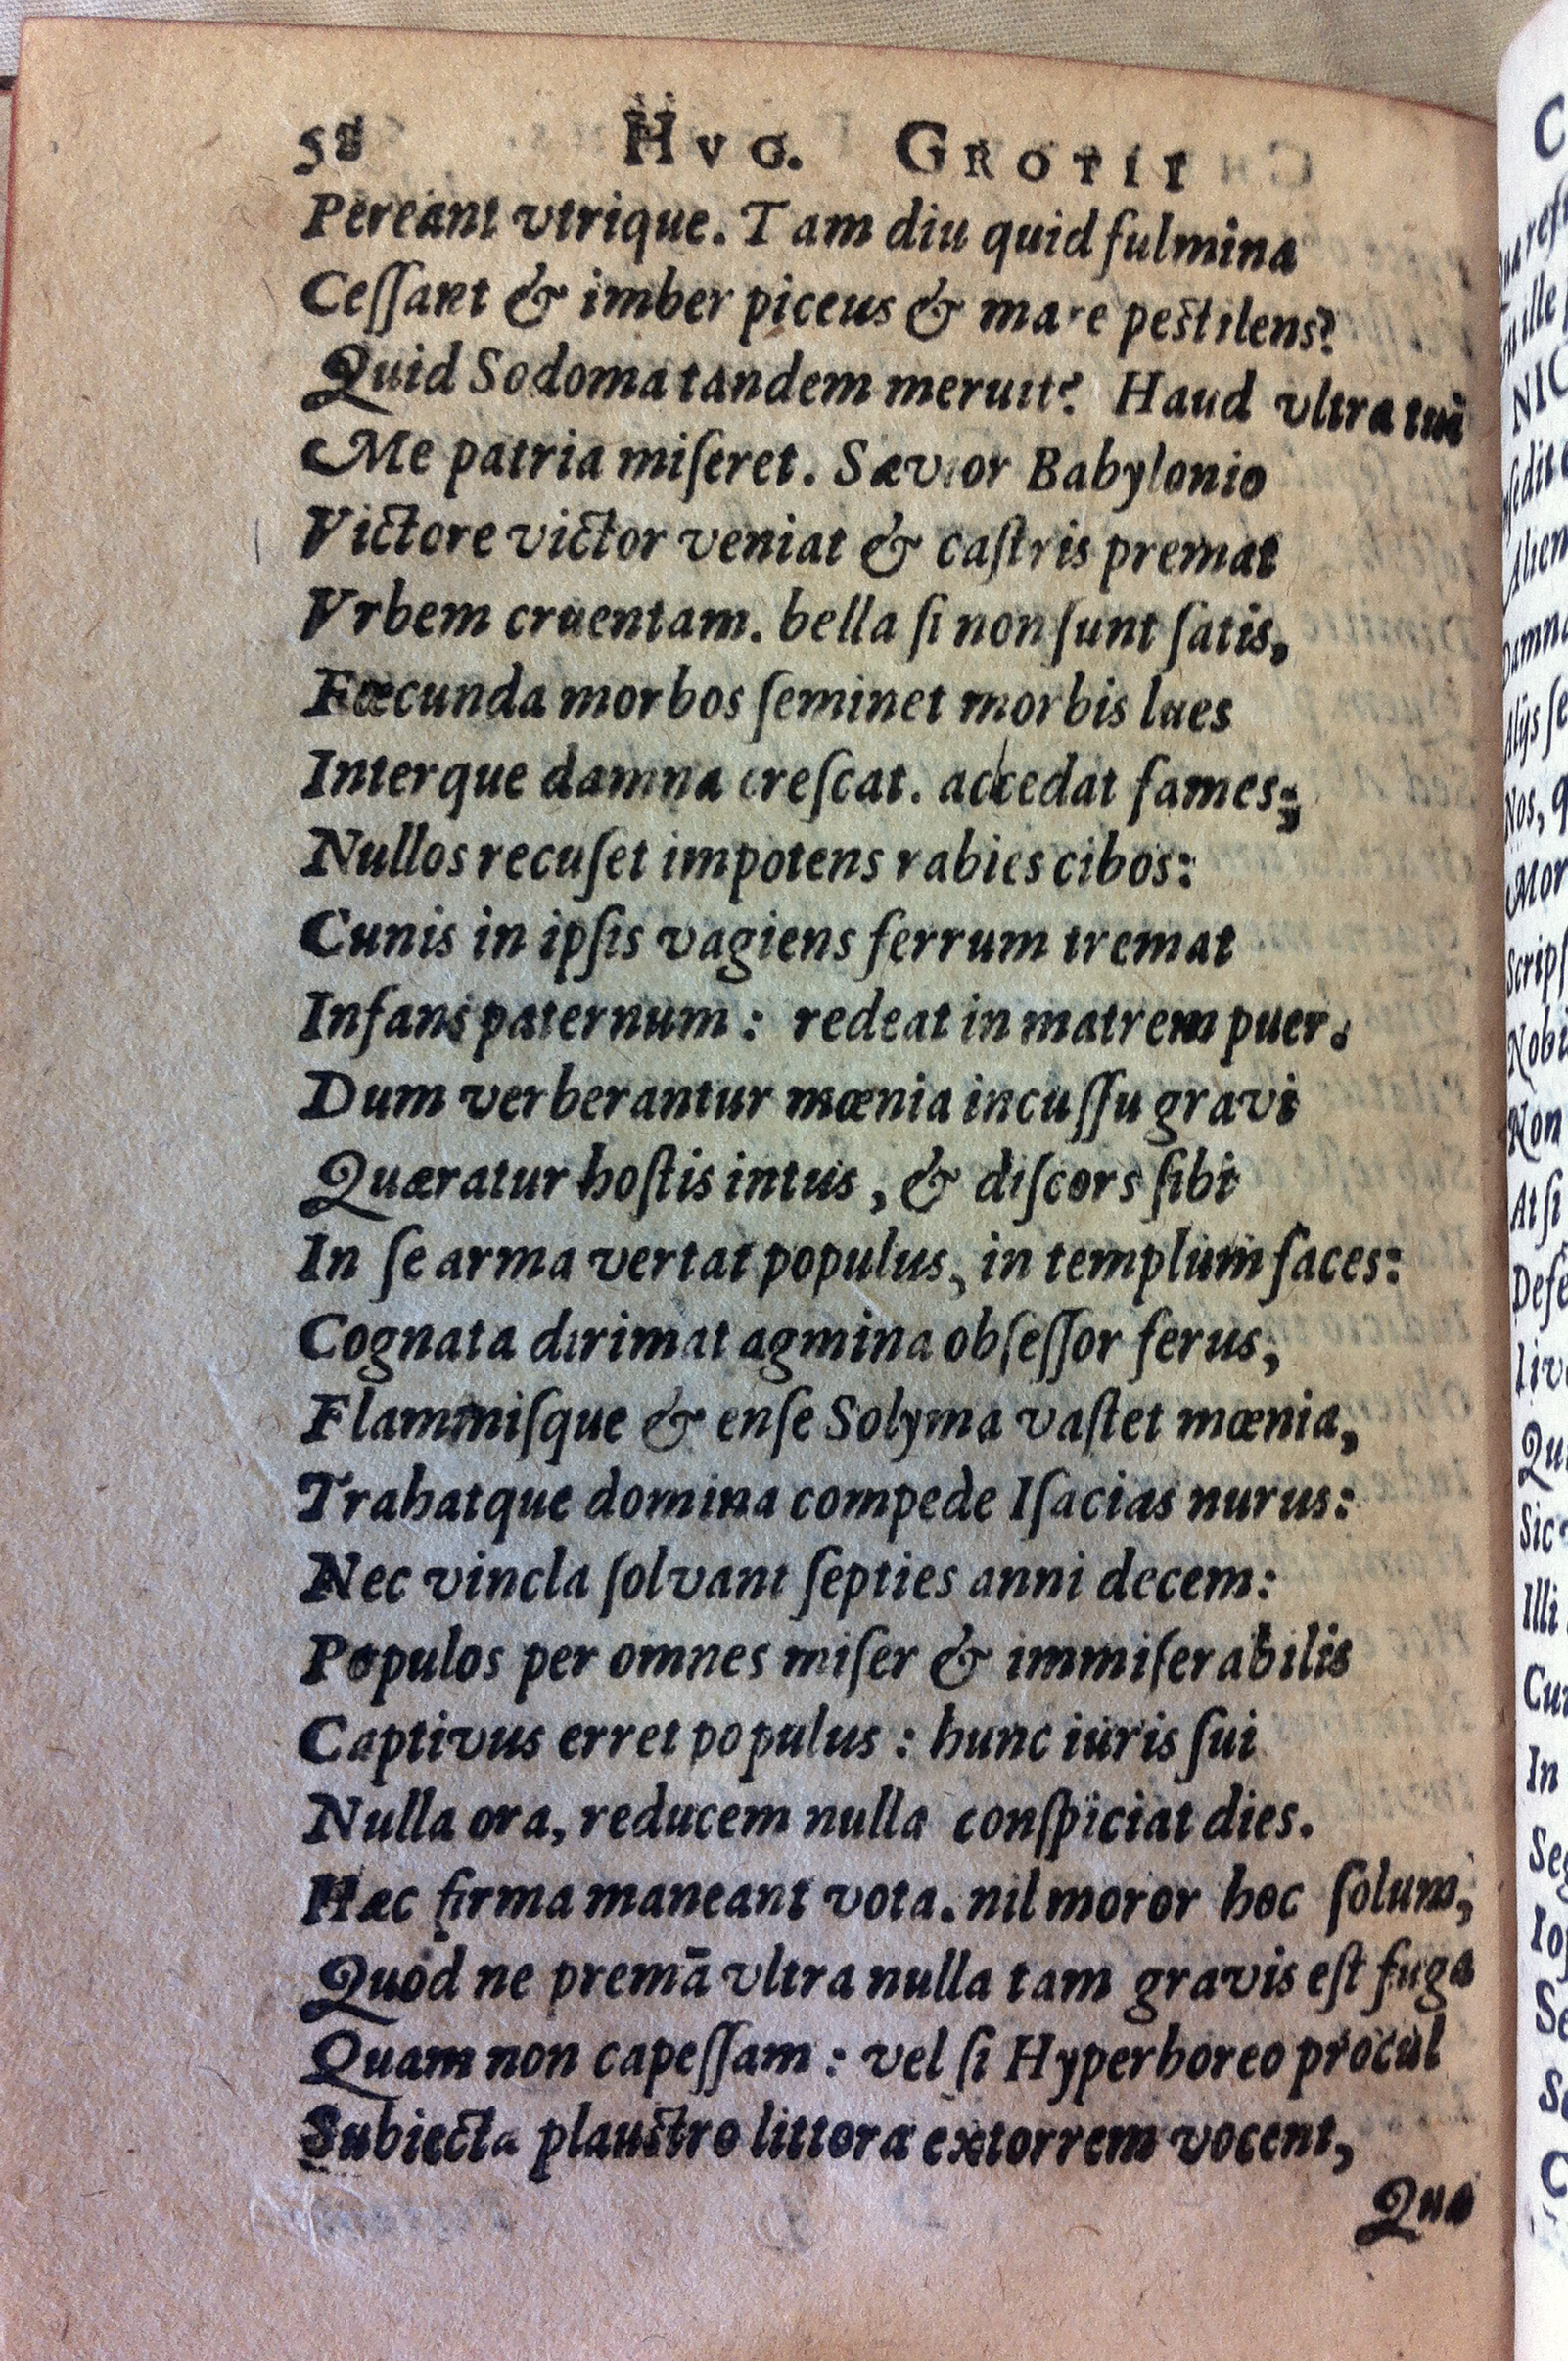 58 HVG. GROTII
Pereant vtrique. Tam diu quid fulmina
Ceſſant & imber piceus & mare peſtilens?
Quid Sodoma tandem meruit? Haud vltra tui
Me patria miſeret. Sævior Babylonio
Victore victor veniat & caſtris premat
Vrbem cruentam. bella ſi non ſunt ſatis,
Fœcunda morbos ſeminet morbis lues
Interque damna creſcat. accedat fames;
Nullos recuſet impotens rabies cibos:
Cunis in ipſis vagiens ferrum tremat
Infans paternum: redeat in matrem puer.
Dum verberantur mœnia incuſſu gravi
Quæratur hoſtis intus, & diſcors ſibi
In ſe arma vertat populus, in templum faces:
Cognata dirimat agmina obſeſſor ferus,
Flammiſque & enſe Solyma vaſtet mœnia,
Trahatque domina compede Iſacias nurus:
Nec vincla ſolvant ſepties anni decem:
Populos per omnes miſer & immiſerabilis
Captivus erret populus: hunc iuris ſui
Nulla ora, reducem nulla conſpiciat dies.
Hæc firma maneant vota. nil moror hoc ſolum,
Quod ne premā vltra nulla tam gravis eſt fuga
Quam non capeſſam: vel ſi Hyperboreo procul
Subiecta plauſtro littora extorrem vocent,
Qua